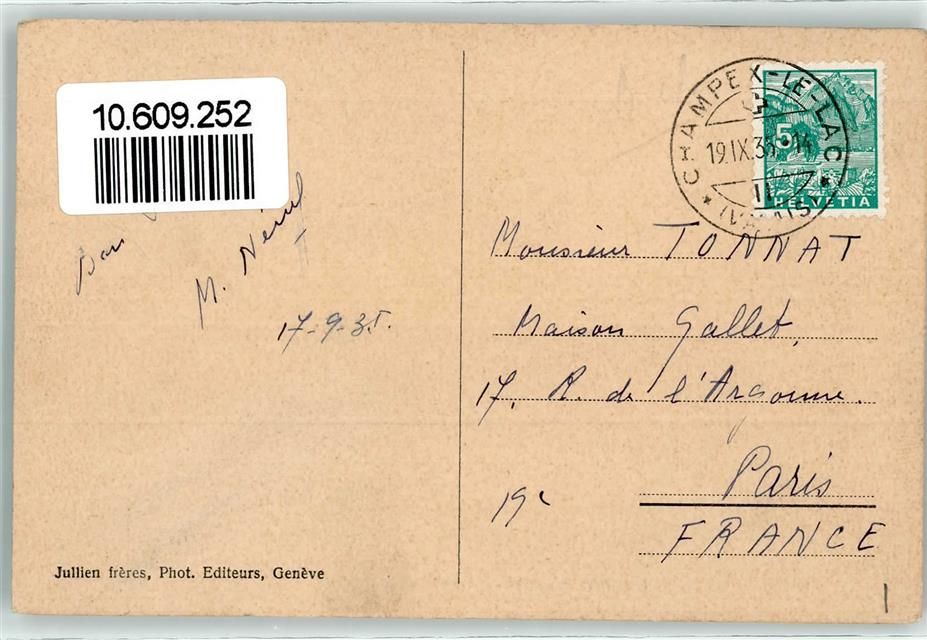 10.609.252
Bon
M.
17-9-35.
Jullien frères, Phot. Editeurs, Genève
CHAMPEX-LE-LAC
19.IX.35.-14
(VALAIS)
5
HELVETIA
Monsieur TONNAT
Maison Gallet,
17, R. de l'Argonne.
Paris
19e
FRANCE